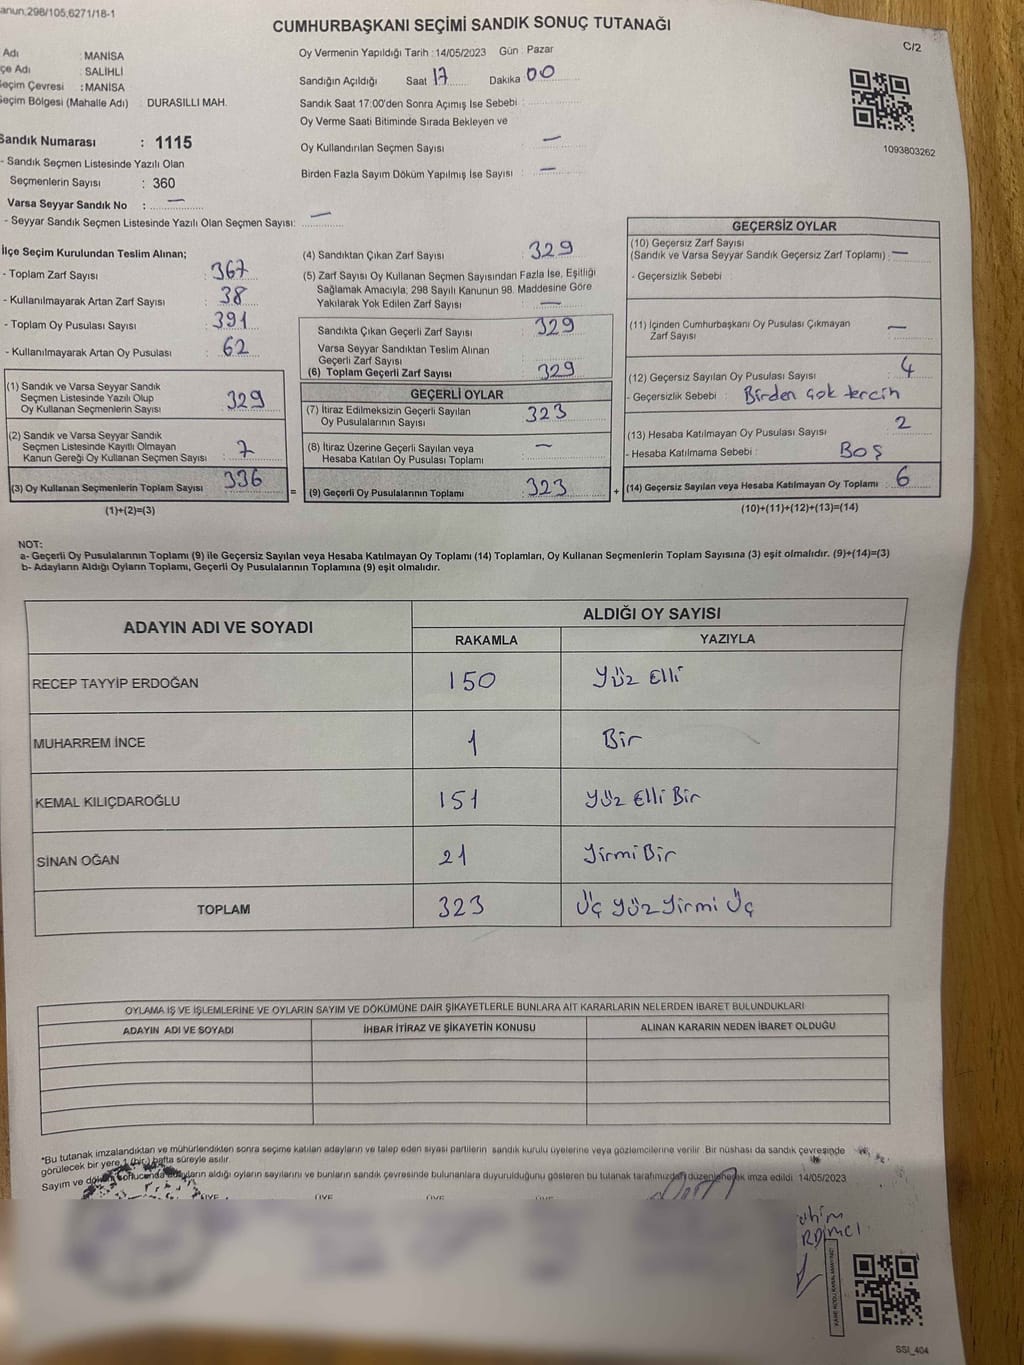 anun;298/105;6271/18-1
CUMHURBAŞKANI SEÇİMİ SANDIK SONUÇ TUTANAĞI
C/2
Adı : MANİSA
çe Adı : SALİHLİ
eçim Çevresi : MANİSA
Seçim Bölgesi (Mahalle Adı) : DURASILLI MAH.
Oy Vermenin Yapıldığı Tarih : 14/05/2023 Gün : Pazar
Sandığın Açıldığı Saat 17 Dakika 00
Sandık Saat 17:00'den Sonra Açımış İse Sebebi :
Oy Verme Saati Bitiminde Sırada Bekleyen ve
Oy Kullandırılan Seçmen Sayısı : —
Birden Fazla Sayım Döküm Yapılmış İse Sayısı : —
1093803262
Sandık Numarası : 1115
- Sandık Seçmen Listesinde Yazılı Olan
Seçmenlerin Sayısı : 360
Varsa Seyyar Sandık No : —
- Seyyar Sandık Seçmen Listesinde Yazılı Olan Seçmen Sayısı: —
İlçe Seçim Kurulundan Teslim Alınan;
- Toplam Zarf Sayısı : 367
- Kullanılmayarak Artan Zarf Sayısı : 38
- Toplam Oy Pusulası Sayısı : 391
- Kullanılmayarak Artan Oy Pusulası : 62
(1) Sandık ve Varsa Seyyar Sandık
Seçmen Listesinde Yazılı Olup
Oy Kullanan Seçmenlerin Sayısı : 329
(2) Sandık ve Varsa Seyyar Sandık
Seçmen Listesinde Kayıtlı Olmayan
Kanun Gereği Oy Kullanan Seçmen Sayısı : 7
(3) Oy Kullanan Seçmenlerin Toplam Sayısı : 336
(1)+(2)=(3)
(4) Sandıktan Çıkan Zarf Sayısı : 329
(5) Zarf Sayısı Oy Kullanan Seçmen Sayısından Fazla İse, Eşitliği
Sağlamak Amacıyla; 298 Sayılı Kanunun 98. Maddesine Göre
Yakılarak Yok Edilen Zarf Sayısı : —
Sandıkta Çıkan Geçerli Zarf Sayısı : 329
Varsa Seyyar Sandıktan Teslim Alınan
Geçerli Zarf Sayısı :
(6) Toplam Geçerli Zarf Sayısı : 329
GEÇERLİ OYLAR
(7) İtiraz Edilmeksizin Geçerli Sayılan
Oy Pusulalarının Sayısı : 323
(8) İtiraz Üzerine Geçerli Sayılan veya
Hesaba Katılan Oy Pusulası Toplamı : —
= (9) Geçerli Oy Pusulalarının Toplamı : 323 +
GEÇERSİZ OYLAR
(10) Geçersiz Zarf Sayısı
(Sandık ve Varsa Seyyar Sandık Geçersiz Zarf Toplamı) : —
- Geçersizlik Sebebi :
(11) İçinden Cumhurbaşkanı Oy Pusulası Çıkmayan
Zarf Sayısı : —
(12) Geçersiz Sayılan Oy Pusulası Sayısı : 4
- Geçersizlik Sebebi : Birden çok tercih
(13) Hesaba Katılmayan Oy Pusulası Sayısı : 2
- Hesaba Katılmama Sebebi : Boş
(14) Geçersiz Sayılan veya Hesaba Katılmayan Oy Toplamı : 6
(10)+(11)+(12)+(13)=(14)
NOT:
a- Geçerli Oy Pusulalarının Toplamı (9) ile Geçersiz Sayılan veya Hesaba Katılmayan Oy Toplamı (14) Toplamları, Oy Kullanan Seçmenlerin Toplam Sayısına (3) eşit olmalıdır. (9)+(14)=(3)
b- Adayların Aldığı Oyların Toplamı, Geçerli Oy Pusulalarının Toplamına (9) eşit olmalıdır.
ADAYIN ADI VE SOYADI ALDIĞI OY SAYISI
RAKAMLA YAZIYLA
RECEP TAYYİP ERDOĞAN 150 Yüz Elli
MUHARREM İNCE 1 Bir
KEMAL KILIÇDAROĞLU 151 Yüz Elli Bir
SİNAN OĞAN 21 Yirmi Bir
TOPLAM 323 Üç Yüz Yirmi Üç
OYLAMA İŞ VE İŞLEMLERİNE VE OYLARIN SAYIM VE DÖKÜMÜNE DAİR ŞİKAYETLERLE BUNLARA AİT KARARLARIN NELERDEN İBARET BULUNDUKLARI
ADAYIN ADI VE SOYADI İHBAR İTİRAZ VE ŞİKAYETİN KONUSU ALINAN KARARIN NEDEN İBARET OLDUĞU
*Bu tutanak imzalandıktan ve mühürlendikten sonra seçime katılan adayların ve talep eden siyasi partilerin sandık kurulu üyelerine veya gözlemcilerine verilir. Bir nüshası da sandık çevresinde
görülecek bir yere 1 (bir) hafta süreyle asılır.
Sayım ve döküm sonucunda adayların aldığı oyların sayılarını ve bunların sandık çevresinde bulunanlara duyurulduğunu gösteren bu tutanak tarafımızdan düzenlenerek imza edildi. 14/05/2023
ÜYE ÜYE ÜYE ÜYE
SSI_404